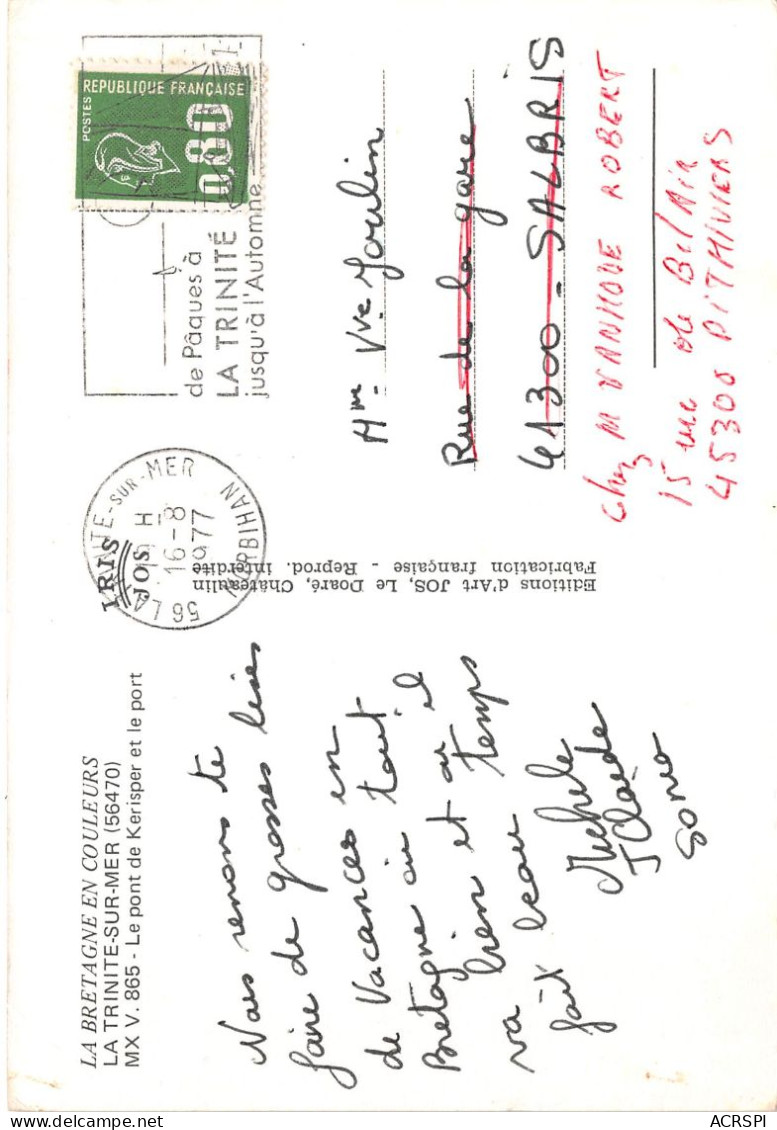 LA BRETAGNE EN COULEURS
LA TRINITE-SUR-MER (56470)
MX V. 865 - Le pont de Kerisper et le port
Nous venons te
faire de grosses bises
de Vacances en
Bretagne où tout
va bien et où il
fait beau temps
Michele
J Claude
Sonia
IRIS
JOS
Editions d'Art JOS, Le Doaré, Chateaulin
Fabrication française - Reprod. interdite
56 LA TRINITE-SUR-MER
H
16-8
1977
MORBIHAN
de Pâques à
LA TRINITÉ
jusqu'à l'Automne
POSTES
REPUBLIQUE FRANÇAISE
0,80
Mme Vve Joulin
Rue de la gare
41300 - SALBRIS
chez M VANHOVE ROBERT
15 rue de Bel Air
45300 PITHIVIERS
ACRSPI